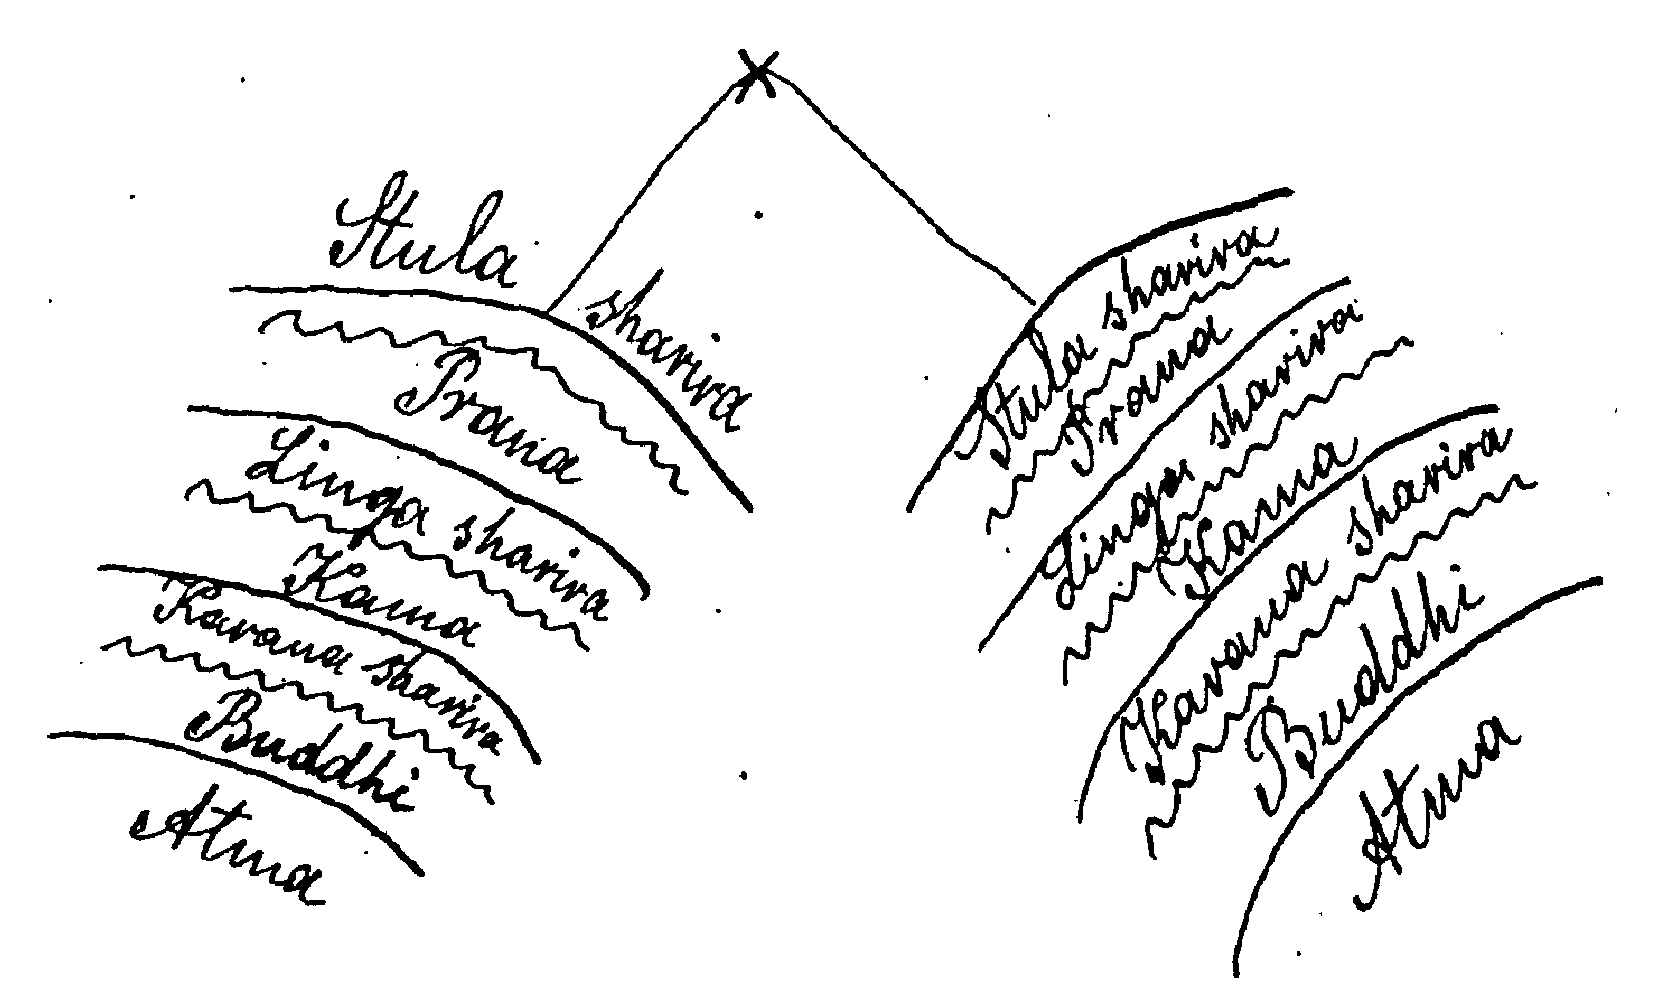 Stula sharira
Prana
Linga sharira
Kama
Karana sharira
Buddhi
Atma
Stula sharira
Prana
Linga sharira
Kama
Karana sharira
Buddhi
Atma